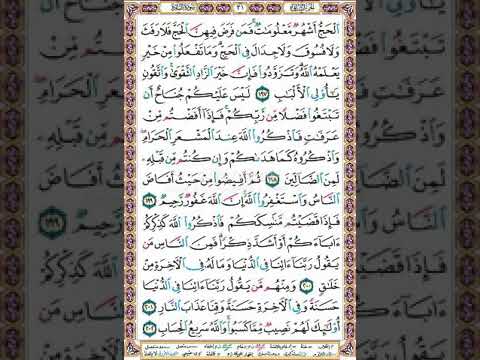 الجزء الثاني ٣١ سورة البقرة
ٱلْحَجُّ أَشْهُرٌ مَّعْلُومَـٰتٌ فَمَن فَرَضَ فِيهِنَّ ٱلْحَجَّ فَلَا رَفَثَ
وَلَا فُسُوقَ وَلَا جِدَالَ فِى ٱلْحَجِّ وَمَا تَفْعَلُوا۟ مِنْ خَيْرٍ
يَعْلَمْهُ ٱللَّهُ وَتَزَوَّدُوا۟ فَإِنَّ خَيْرَ ٱلزَّادِ ٱلتَّقْوَىٰ وَٱتَّقُونِ
يَـٰٓأُو۟لِى ٱلْأَلْبَـٰبِ ١٩٧ لَيْسَ عَلَيْكُمْ جُنَاحٌ أَن
تَبْتَغُوا۟ فَضْلًا مِّن رَّبِّكُمْ فَإِذَآ أَفَضْتُم مِّنْ
عَرَفَـٰتٍ فَٱذْكُرُوا۟ ٱللَّهَ عِندَ ٱلْمَشْعَرِ ٱلْحَرَامِ
وَٱذْكُرُوهُ كَمَا هَدَىٰكُمْ وَإِن كُنتُم مِّن قَبْلِهِۦ
لَمِنَ ٱلضَّآلِّينَ ١٩٨ ثُمَّ أَفِيضُوا۟ مِنْ حَيْثُ أَفَاضَ
ٱلنَّاسُ وَٱسْتَغْفِرُوا۟ ٱللَّهَ إِنَّ ٱللَّهَ غَفُورٌ رَّحِيمٌ ١٩٩
فَإِذَا قَضَيْتُم مَّنَـٰسِكَكُمْ فَٱذْكُرُوا۟ ٱللَّهَ كَذِكْرِكُمْ
ءَابَآءَكُمْ أَوْ أَشَدَّ ذِكْرًا فَمِنَ ٱلنَّاسِ مَن
يَقُولُ رَبَّنَآ ءَاتِنَا فِى ٱلدُّنْيَا وَمَا لَهُۥ فِى ٱلْـَٔاخِرَةِ مِنْ
خَلَـٰقٍ ٢٠٠ وَمِنْهُم مَّن يَقُولُ رَبَّنَآ ءَاتِنَا فِى ٱلدُّنْيَا
حَسَنَةً وَفِى ٱلْـَٔاخِرَةِ حَسَنَةً وَقِنَا عَذَابَ ٱلنَّارِ ٢٠١
أُو۟لَـٰٓئِكَ لَهُمْ نَصِيبٌ مِّمَّا كَسَبُوا۟ وَٱللَّهُ سَرِيعُ ٱلْحِسَابِ ٢٠٢